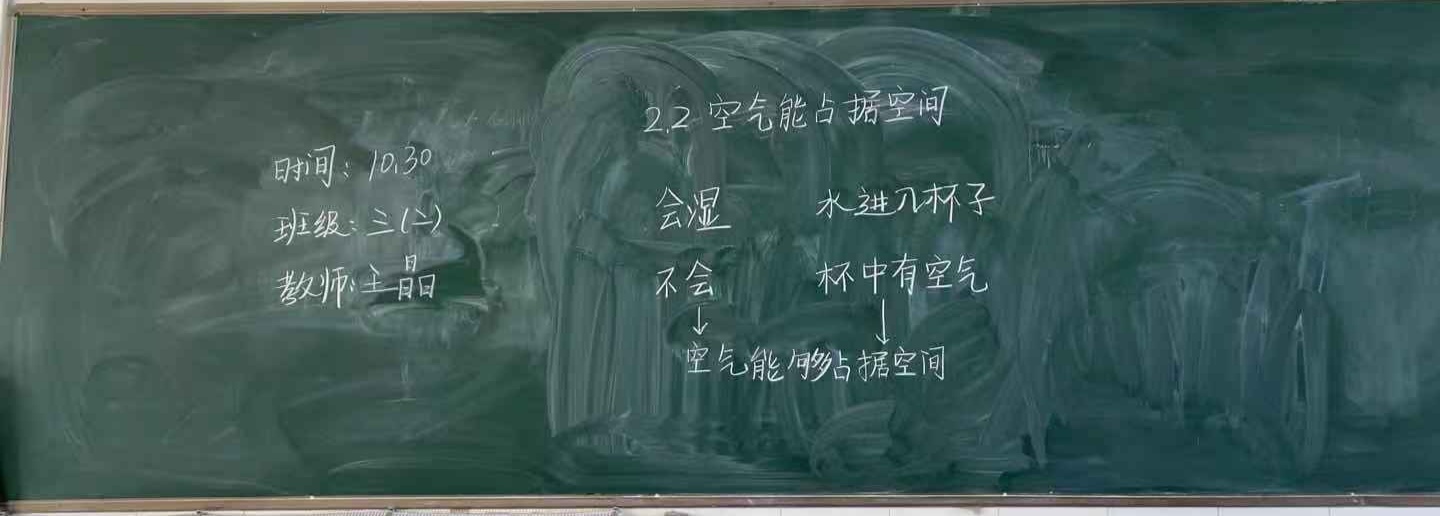 2.2 空气能占据空间
时间：10.30
班级：三(二)
教师：王晶
会湿 水进入杯子
不会 杯中有空气
↓ ↓
空气能够占据空间